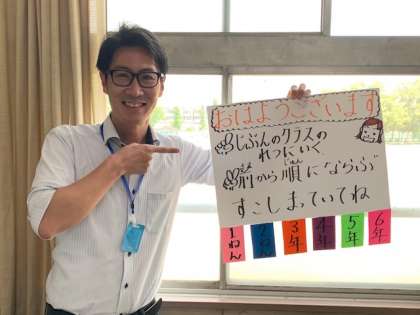 おはようございます
じぶんのクラスの
れつにいく
前から順にならぶ
まえ じゅん
すこしまっていてね
1ねん 2ねん 3年 4年 5年 6年